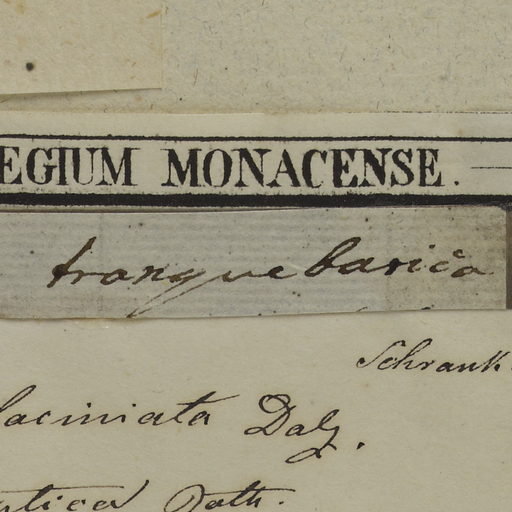 EGIUM MONACENSE.
tranquebarica
Schrank
laciniata Dalz.
Roth.